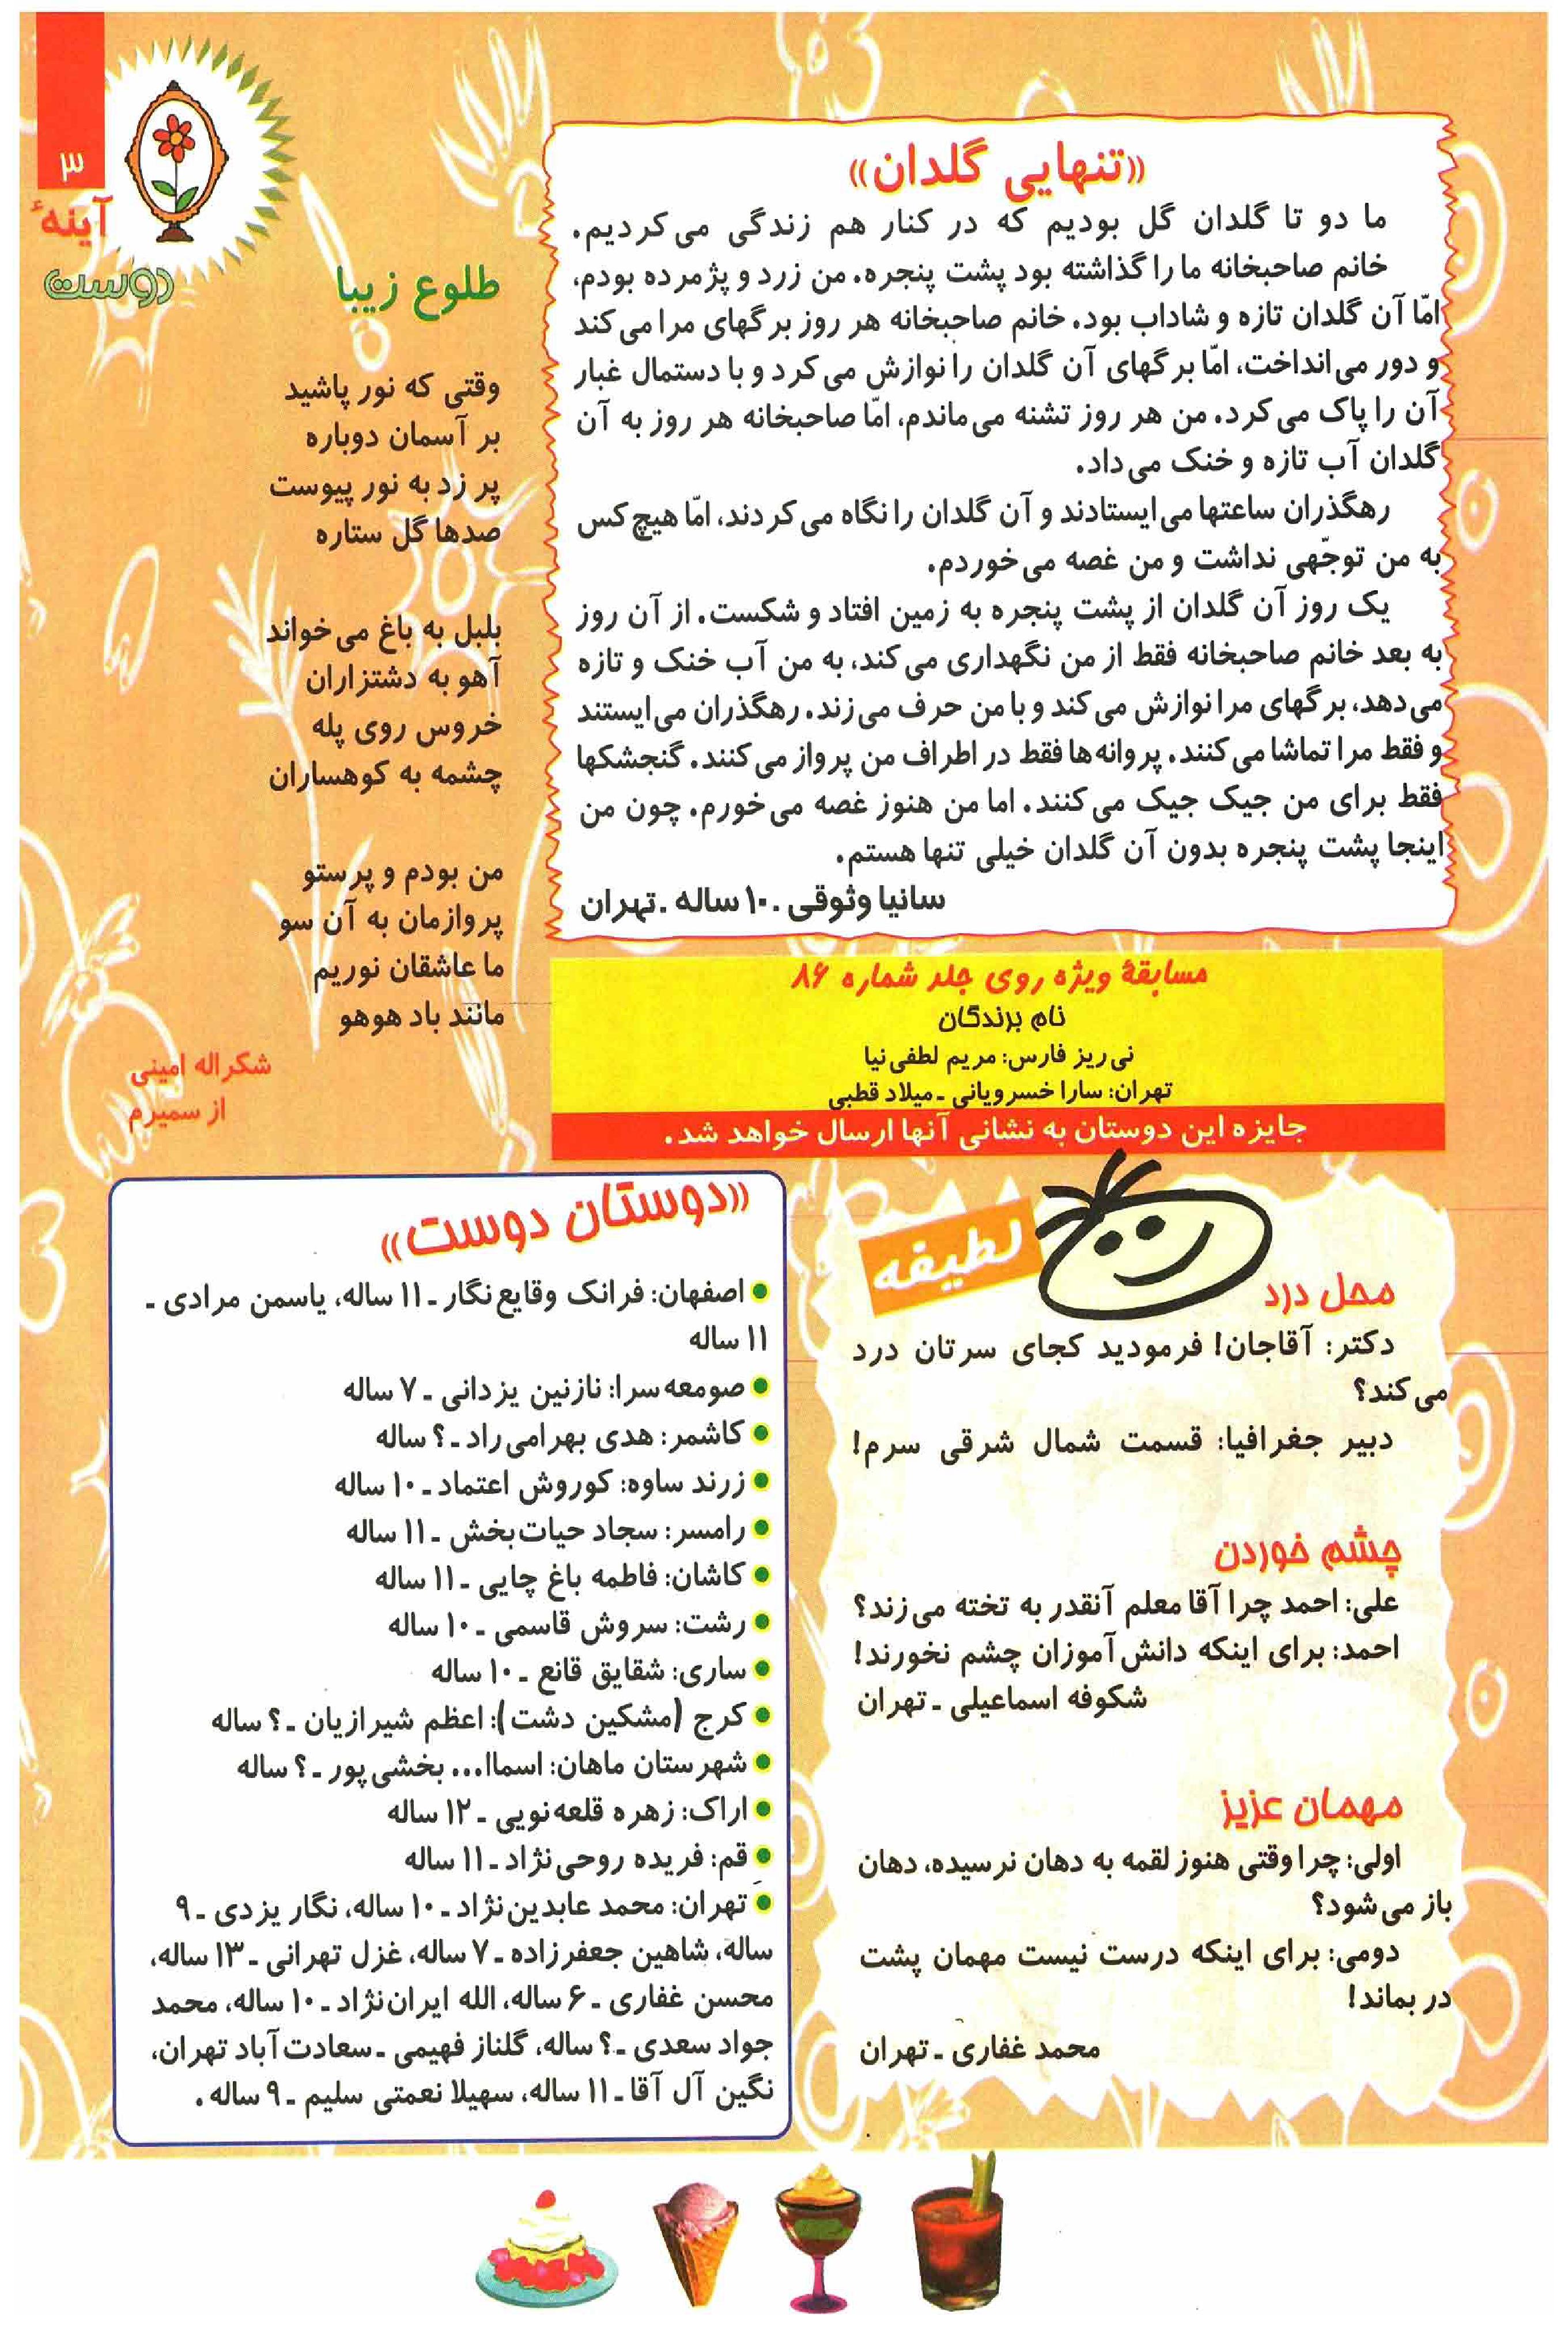 ۳
آینهٔ
دوست
«تنهایی گلدان»
ما دو تا گلدان گل بودیم که در کنار هم زندگی می‌کردیم.
خانم صاحبخانه ما را گذاشته بود پشت پنجره. من زرد و پژمرده بودم،
امّا آن گلدان تازه و شاداب بود. خانم صاحبخانه هر روز برگهای مرا می‌کند
و دور می‌انداخت، امّا برگهای آن گلدان را نوازش می‌کرد و با دستمال غبار
آن را پاک می‌کرد. من هر روز تشنه می‌ماندم، امّا صاحبخانه هر روز به آن
گلدان آب تازه و خنک می‌داد.
رهگذران ساعتها می‌ایستادند و آن گلدان را نگاه می‌کردند، امّا هیچ کس
به من توجّهی نداشت و من غصه می‌خوردم.
یک روز آن گلدان از پشت پنجره به زمین افتاد و شکست. از آن روز
به بعد خانم صاحبخانه فقط از من نگهداری می‌کند، به من آب خنک و تازه
می‌دهد، برگهای مرا نوازش می‌کند و با من حرف می‌زند. رهگذران می‌ایستند
و فقط مرا تماشا می‌کنند. پروانه‌ها فقط در اطراف من پرواز می‌کنند. گنجشکها
فقط برای من جیک جیک می‌کنند. اما من هنوز غصه می‌خورم. چون من
اینجا پشت پنجره بدون آن گلدان خیلی تنها هستم.
سانیا وثوقی ـ ۱۰ ساله ـ تهران
طلوع زیبا
وقتی که نور پاشید
بر آسمان دوباره
پر زد به نور پیوست
صدها گل ستاره
بلبل به باغ می‌خواند
آهو به دشتزاران
خروس روی پله
چشمه به کوهساران
من بودم و پرستو
پروازمان به آن سو
ما عاشقان نوریم
مانند باد هوهو
شکراله امینی
از سمیرم
مسابقهٔ ویژه روی جلد شماره ۸۶
نام برندگان
نی‌ریز فارس: مریم لطفی‌نیا
تهران: سارا خسرویانی ـ میلاد قطبی
جایزه این دوستان به نشانی آنها ارسال خواهد شد.
لطیفه
محل درد
دکتر: آقاجان! فرمودید کجای سرتان درد
می‌کند؟
دبیر جغرافیا: قسمت شمال شرقی سرم!
چشم خوردن
علی: احمد چرا آقا معلم آنقدر به تخته می‌زند؟
احمد: برای اینکه دانش‌آموزان چشم نخورند!
شکوفه اسماعیلی ـ تهران
مهمان عزیز
اولی: چرا وقتی هنوز لقمه به دهان نرسیده، دهان
باز می‌شود؟
دومی: برای اینکه درست نیست مهمان پشت
در بماند!
محمد غفاری ـ تهران
«دوستان دوست»
● اصفهان: فرانک وقایع‌نگار ـ ۱۱ ساله، یاسمن مرادی ـ
۱۱ ساله
● صومعه‌سرا: نازنین یزدانی ـ ۷ ساله
● کاشمر: هدی بهرامی‌راد ـ ؟ ساله
● زرند ساوه: کوروش اعتماد ـ ۱۰ ساله
● رامسر: سجاد حیات‌بخش ـ ۱۱ ساله
● کاشان: فاطمه باغ چایی ـ ۱۱ ساله
● رشت: سروش قاسمی ـ ۱۰ ساله
● ساری: شقایق قانع ـ ۱۰ ساله
● کرج (مشکین دشت): اعظم شیرازیان ـ ؟ ساله
● شهرستان ماهان: اسماا... بخشی‌پور ـ ؟ ساله
● اراک: زهره قلعه‌نویی ـ ۱۲ ساله
● قم: فریده روحی‌نژاد ـ ۱۱ ساله
● تهران: محمد عابدین‌نژاد ـ ۱۰ ساله، نگار یزدی ـ ۹
ساله، شاهین جعفرزاده ـ ۷ ساله، غزل تهرانی ـ ۱۳ ساله،
محسن غفاری ـ ۶ ساله، الله ایران‌نژاد ـ ۱۰ ساله، محمد
جواد سعدی ـ ؟ ساله، گلناز فهیمی ـ سعادت‌آباد تهران،
نگین آل آقا ـ ۱۱ ساله، سهیلا نعمتی سلیم ـ ۹ ساله.